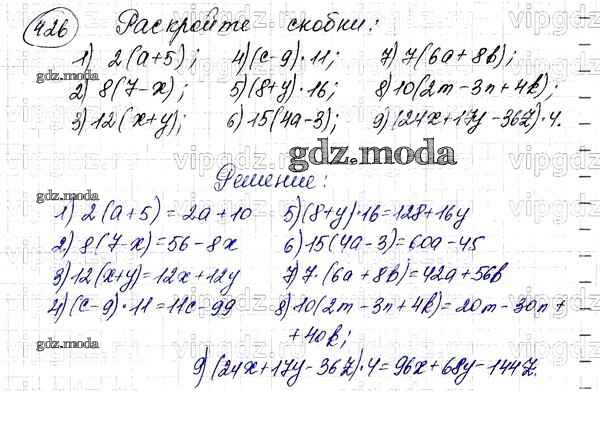 426 Раскройте скобки:
1) 2(a+5); 4)(c-9)·11; 7) 7(6a+8b);
gdz.moda
2) 8(7-x); 5)(8+y)·16; 8) 10(2m-3n+4k);
3) 12(x+y); 6) 15(4a-3); 9)(24x+17y-36z)·4.
gdz.moda
Решение:
1) 2(a+5)=2a+10 5)(8+y)·16=128+16y
gdz.moda
2) 8(7-x)=56-8x 6) 15(4a-3)=60a-45
3) 12(x+y)=12x+12y 7) 7·(6a+8b)=42a+56b
4)(c-9)·11=11c-99 8) 10(2m-3n+4k)=20m-30n+
gdz.moda
+40k;
9)(24x+17y-36z)·4=96x+68y-144z.